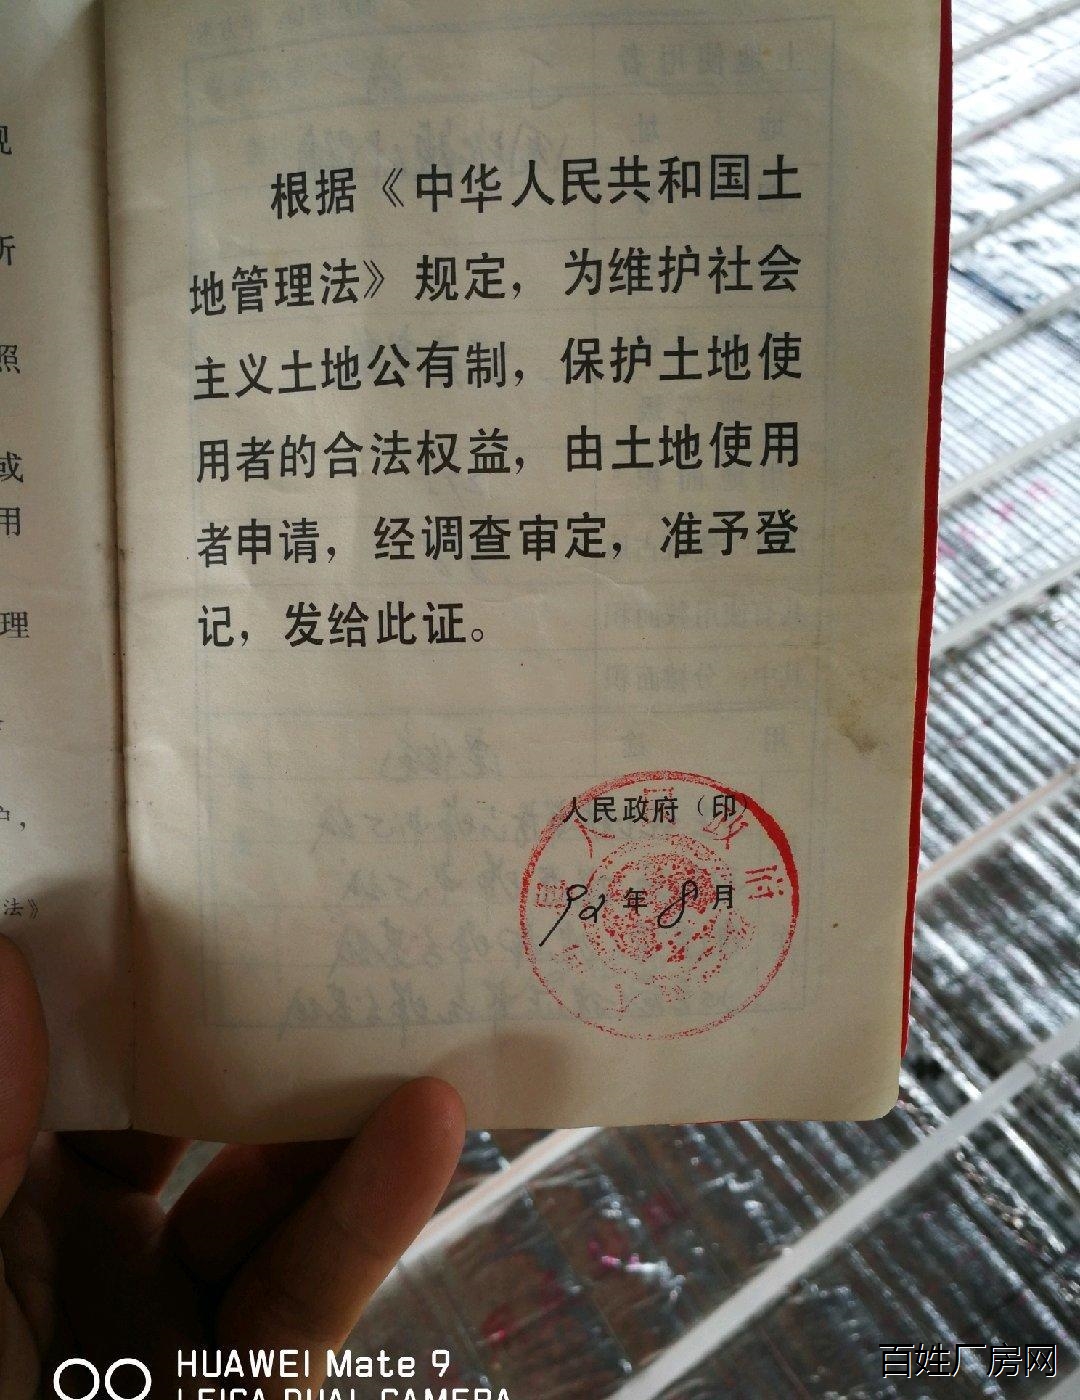 规
所
照
或
用
理
户，
法》
根据《中华人民共和国土
地管理法》规定，为维护社会
主义土地公有制，保护土地使
用者的合法权益，由土地使用
者申请，经调查审定，准予登
记，发给此证。
人民政府（印）
92年8月
HUAWEI Mate 9
LEICA DUAL CAMERA
百姓厂房网